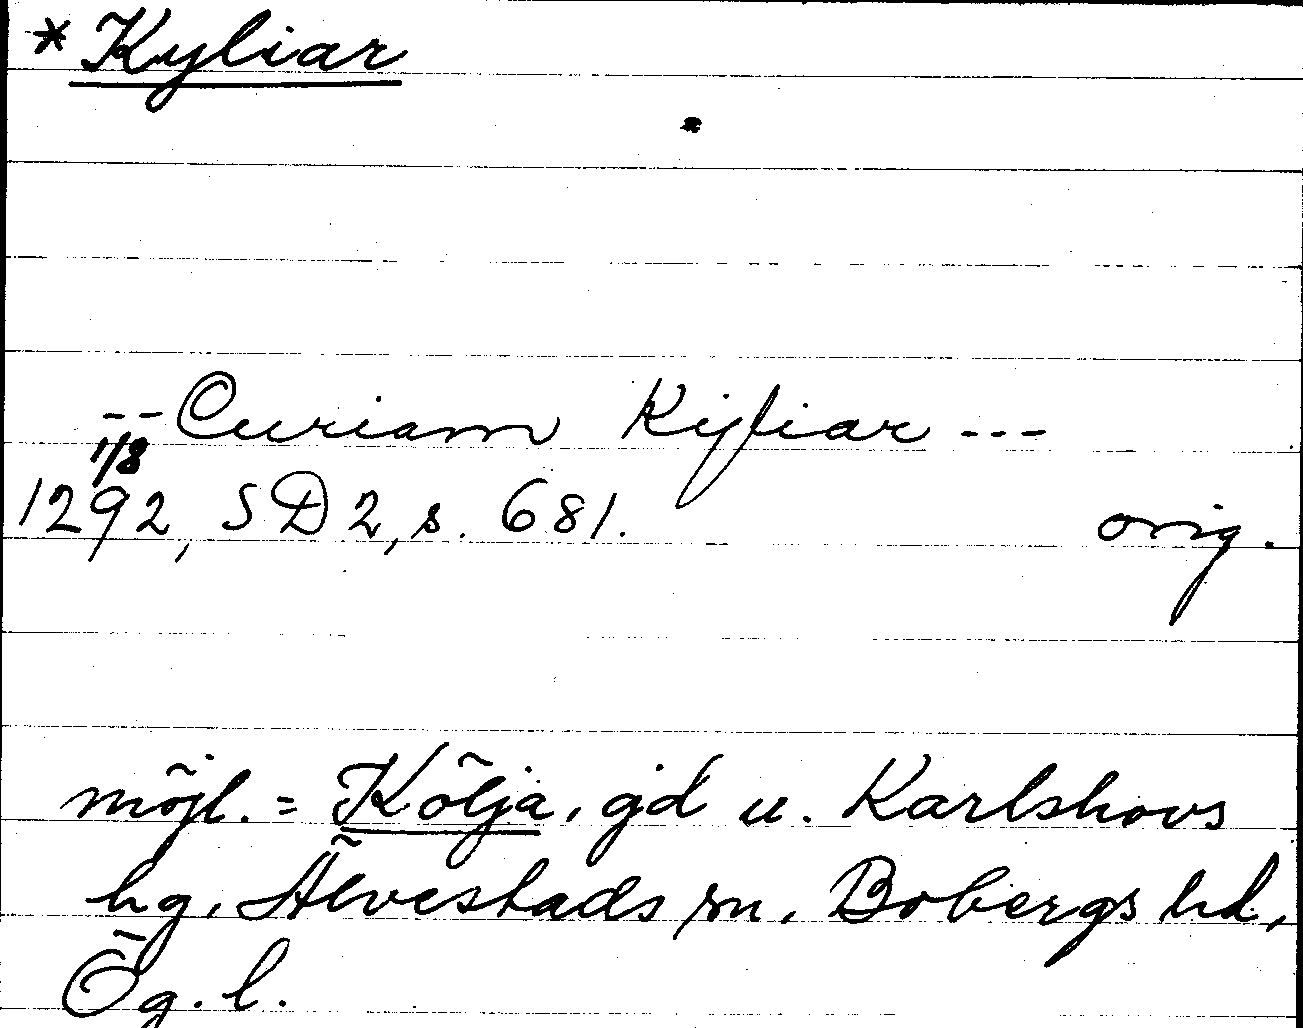 * Kyliar
-- Curiam Kyliar ---
1/8
1292, SD 2, s. 681. orig.
möjl. = Kölja, gd u. Karlshovs
hg, Älvestads sn, Bobergs hd,
Ög. l.